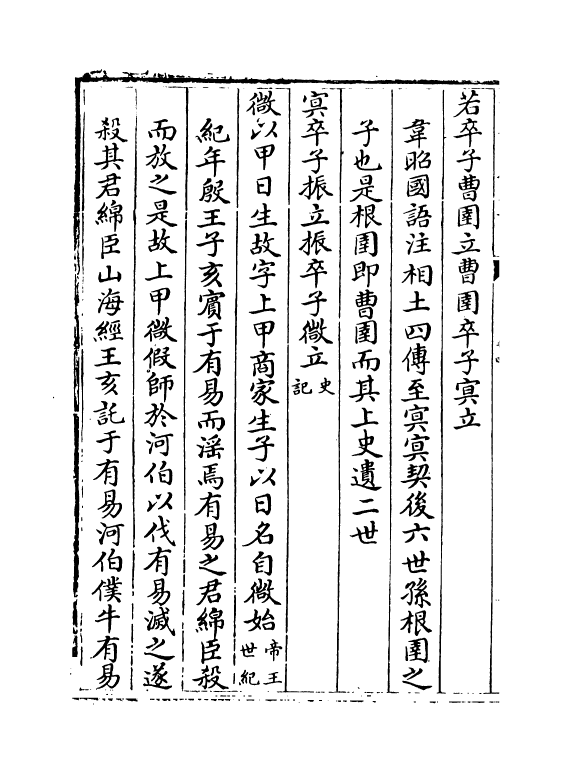 若卒子曹圉立曹圉卒子㝠立
韋昭國語注相土四傳至㝠㝠契後六世孫根圉之
子也是根圉即曹圉而其上史遺二世
㝠卒子振立振卒子微立史記
微以甲日生故字上甲商家生子以日名自微始帝王世紀
紀年殷王子亥賓于有易而滛焉有易之君綿臣殺
而放之是故上甲微假師於河伯以伐有易滅之遂
殺其君綿臣山海經王亥託于有易河伯僕牛有易